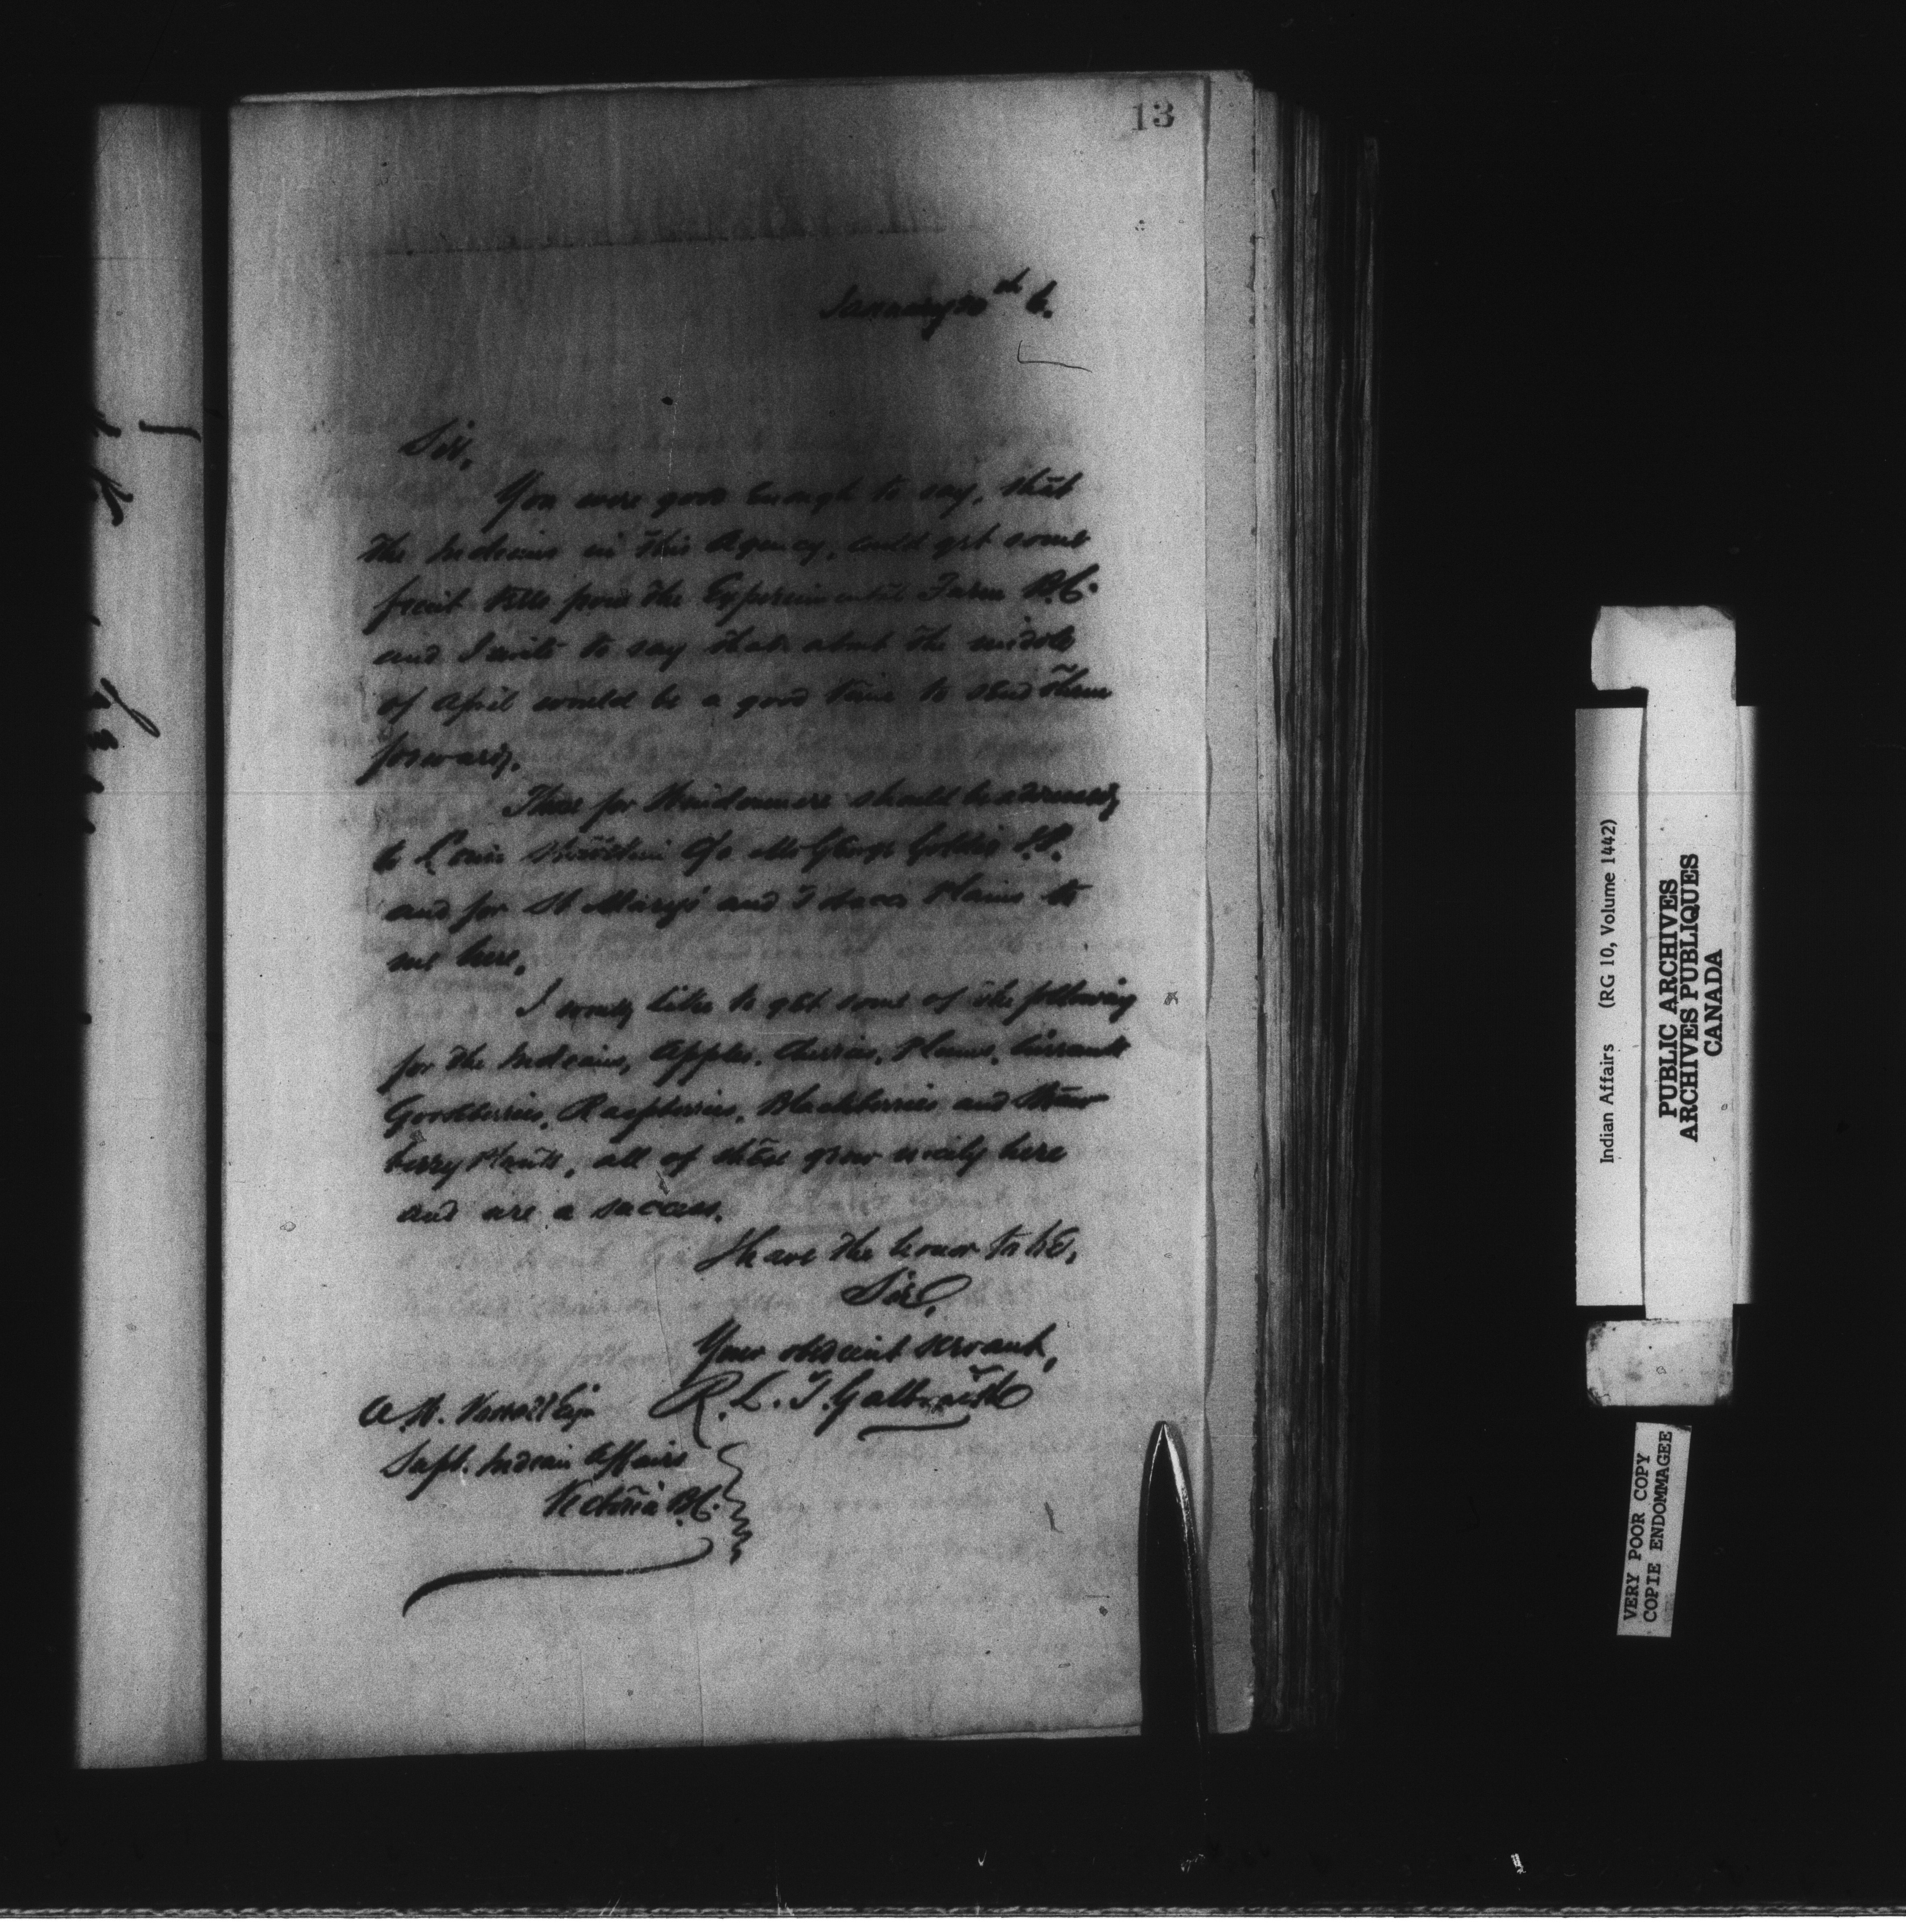 13
January
Sir,
You were good enough to say, that
the Indians in this Agency, could get some
fruit trees from the Experimental Farm B.C.
and I write to say that about the middle
of April would be a good time to send them
forward.
Those for Windermere should be addressed
to Louis c/o Mr George Goldie
and for St Mary's and Tobacco Plains to
me here.
I would like to get some of the following
for the Indians, Apples, Cherries, Plums, Currants
Gooseberries, Raspberries, Blackberries and Straw
berry Plants, all of these grow nicely here
and are a success.
I have the honor to be,
Sir,
Your obedient servant,
R. L. T. Galbraith
A. W. Vowell Esqr
Supt. Indian Affairs
Victoria B.C.
Indian Affairs (RG 10, Volume 1442)
PUBLIC ARCHIVES
ARCHIVES PUBLIQUES
CANADA
VERY POOR COPY
COPIE ENDOMMAGEE